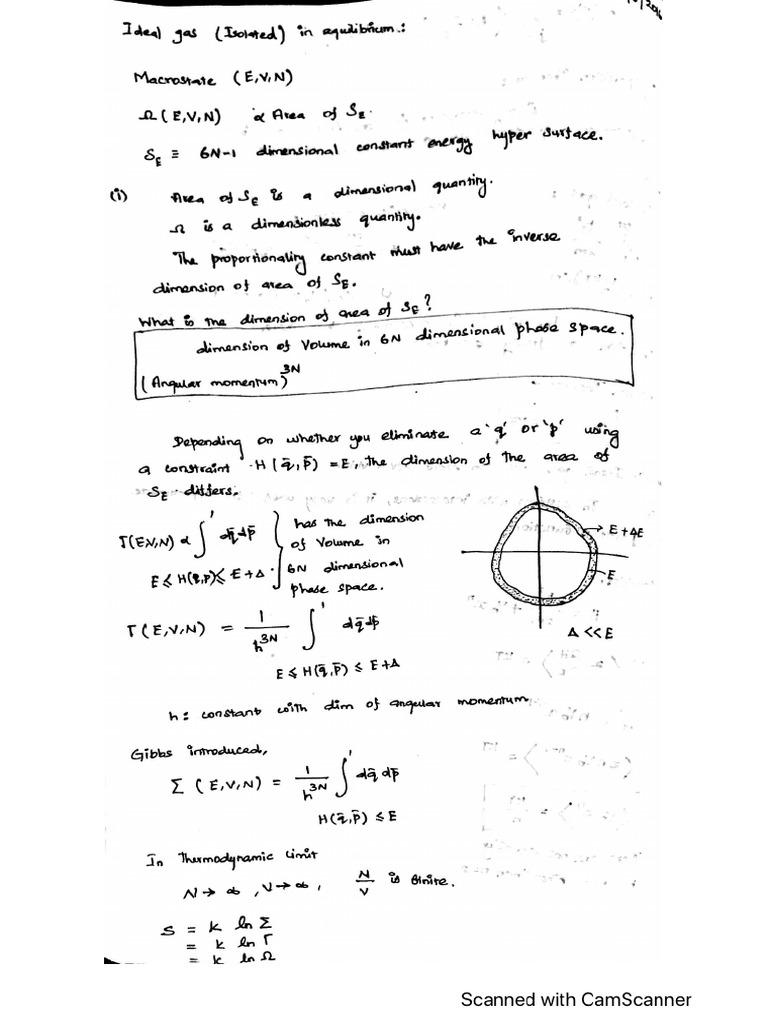 Ideal gas (Isolated) in equilibrium:
Macrostate (E,V,N)
Ω(E,V,N) ∝ Area of S_E.
S_E ≡ 6N-1 dimensional constant energy hyper surface.
(i) Area of S_E is a dimensional quantity.
Ω is a dimensionless quantity.
The proportionality constant must have the inverse
dimension of area of S_E.
What is the dimension of area of S_E?
dimension of Volume in 6N dimensional phase space.
(Angular momentum)^3N
Depending on whether you eliminate a 'q' or 'p' using
a constraint H(q̄,p̄) = E, the dimension of the area of
S_E differs.
Γ(E,V,N) ∝ ∫' dq̄dp̄ } has the dimension
of Volume in
E ≤ H(q,p) ≤ E+Δ . 6N dimensional
phase space.
E+ΔE
E
Δ << E
Γ(E,V,N) = 1/h^3N ∫' dq̄dp̄
E ≤ H(q̄,p̄) ≤ E+Δ
h: constant with dim of angular momentum
Gibbs introduced,
Σ (E,V,N) = 1/h^3N ∫' dq̄ dp̄
H(q̄,p̄) ≤ E
In Thermodynamic limit
N→∞, V→∞, N/V is finite.
S = k ln Σ
= k ln Γ
= k ln Ω
Scanned with CamScanner